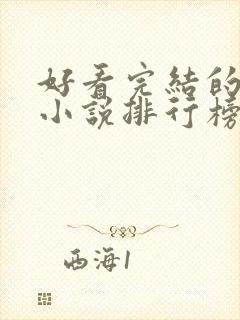 好看完結的
小說排行榜
西海1